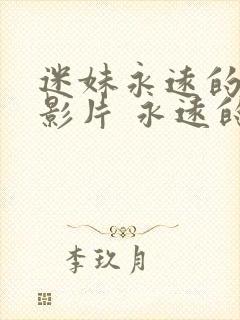 迷妹永远的
影片 永远的
李玖月